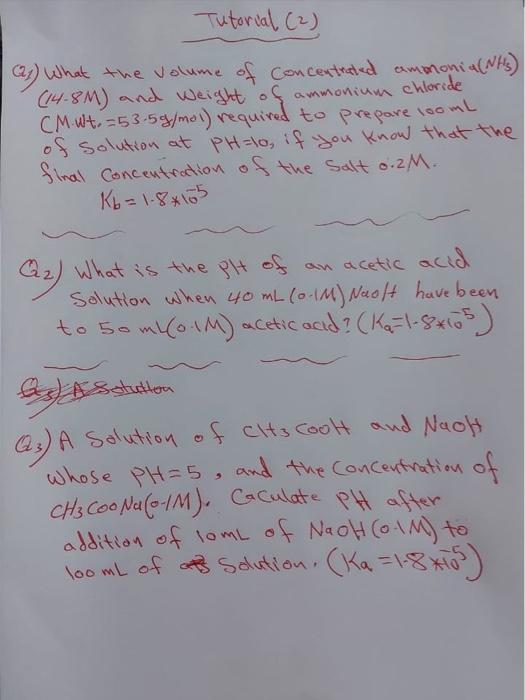 Tutorial (2)
Q1) What the volume of concentrated ammonia (NH3)
(14.8M) and weight of ammonium chloride
(M.wt. = 53.5g/mol) required to prepare 100mL
of solution at PH=10, if you know that the
final concentration of the salt 0.2M.
Kb = 1.8*10^-5
Q2) What is the pH of an acetic acid
Solution when 40 mL (0.1M) NaoH have been
to 50 mL (0.1M) acetic acid? (Ka=1.8*10^-5)
Q3) A Solution
Q3) A Solution of CH3COOH and NaOH
whose PH=5, and the concentration of
CH3COONa (0.1M). Caculate PH after
addition of 10mL of NaOH (0.1M) to
100 mL of Solution. (Ka = 1.8*10^-5)